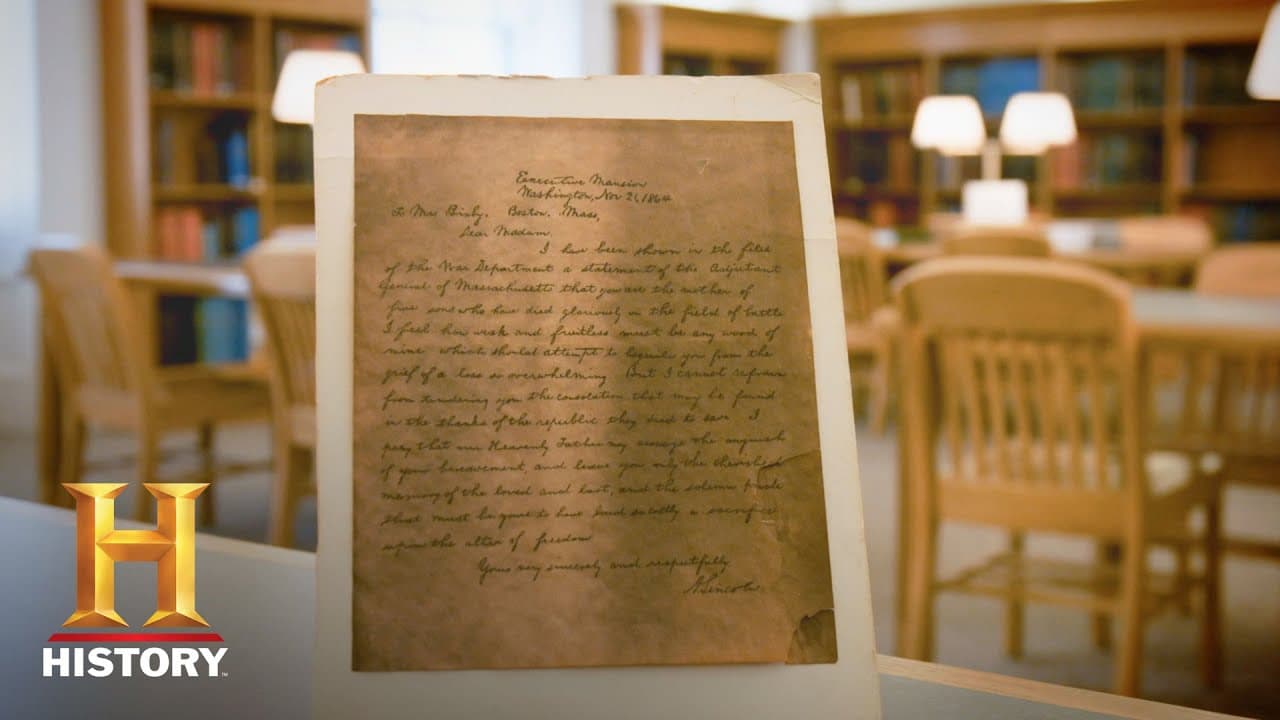 Executive Mansion
Washington, Nov 21, 1864
To Mrs Bixby, Boston, Mass,
Dear Madam.
I have been shown in the files
of the War Department a statement of the Adjutant
General of Massachusetts that you are the mother of
five sons who have died gloriously on the field of battle
I feel how weak and fruitless must be any word of
mine which should attempt to beguile you from the
grief of a loss so overwhelming But I cannot refrain
from tendering you the consolation that may be found
in the thanks of the republic they died to save I
pray that our Heavenly Father may assuage the anguish
of your bereavement, and leave you only the cherished
memory of the loved and lost, and the solemn pride
that must be yours to have laid so costly a sacrifice
upon the altar of freedom
Yours very sincerely and respectfully
A Lincoln
H
HISTORY